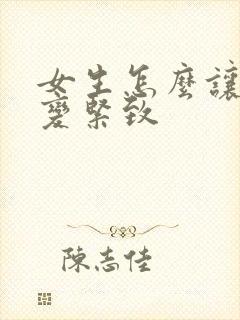 女生怎麼讓
變緊致
陳志佳